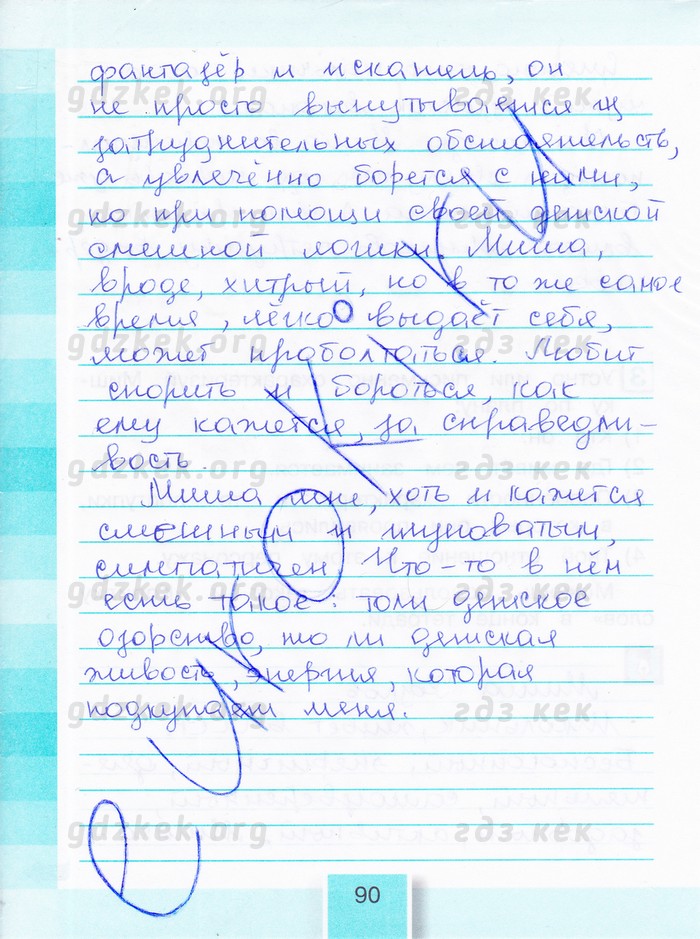 фантазёр и искатель, он
не просто выпутывается из
затруднительных обстоятельств,
а увлечённо борется с ними,
но при помощи своей детской
смешной логики. Миша,
вроде, хитрый, но в то же самое
время, легко выдаёт себя,
может проболтаться. Любит
спорить и бороться, как
ему кажется, за справедли-
вость.
Миша мне, хоть и кажется
смешным и глуповатым,
симпатичен. Что-то в нём
есть такое: толи детское
озорство, то ли детская
живость, энергия, которая
подкупает меня.
gdzkek.org гдз кек
90